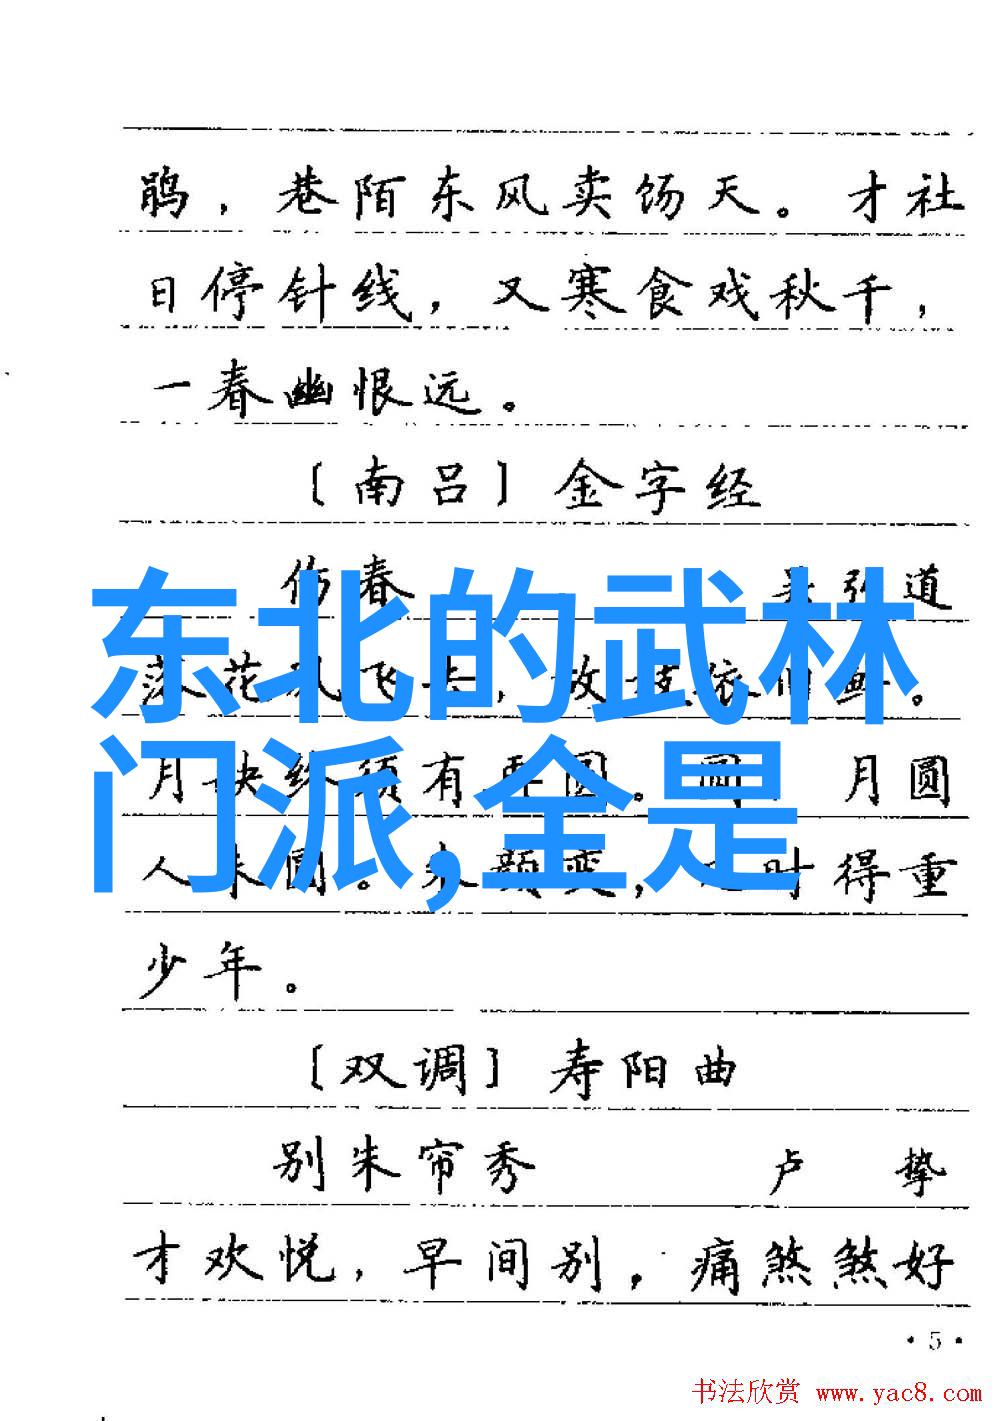 鹃，巷陌东风卖饧天。才社
日停针线，又寒食戏秋千，
一春幽恨远。
〔南吕〕金字经
伤春 吴弘道
落花风飞去，故枝依旧鲜。
月缺终须有再圆。圆，月圆
人未圆。朱颜变，几时得重
少年。
〔双调〕寿阳曲
别朱帘秀 卢挚
才欢悦，早间别，痛煞煞好
·5·
东北的武林
门派,全是
书法欣赏 www.yac8.com